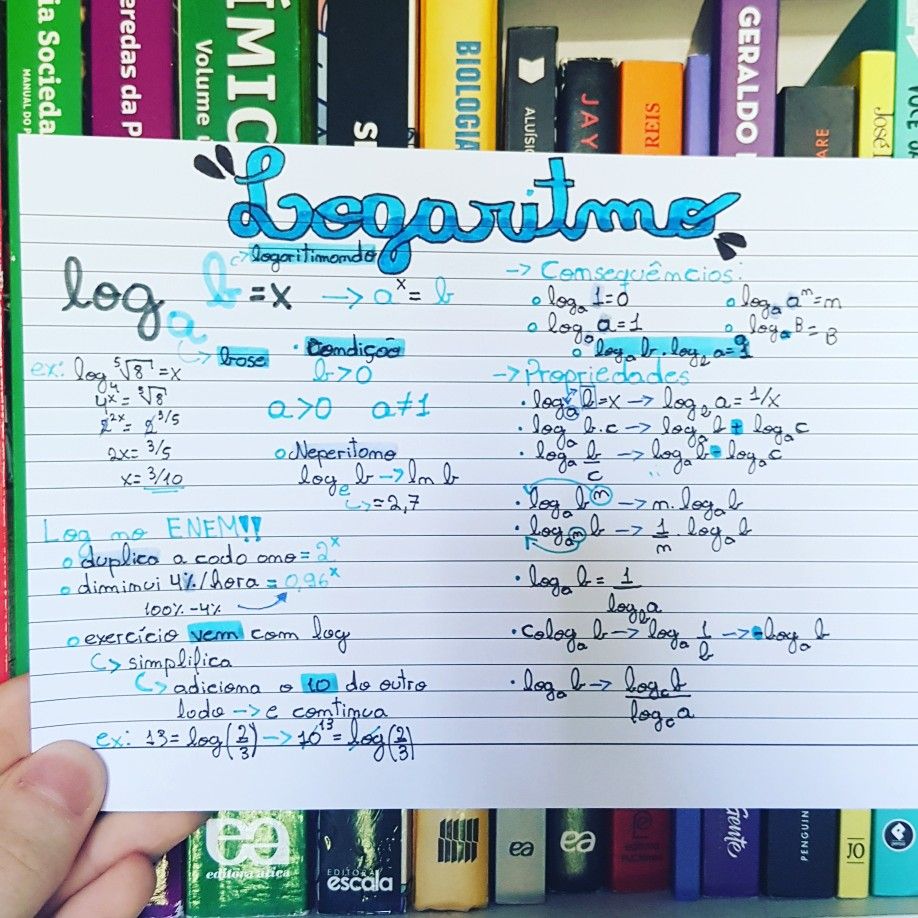 ia Sociedad
MANUAL DO P
eredas da P
ÍMIC
Volume
BIOLOGIA
ALUÍSIO
JAY
REIS
GERALDO
ARE
José
Logaritmo
logaritimando
log_a b = x → a^x = b
base
ex: log_4 ⁵√8 = x
4^x = ⁵√8
2^2x = 2^3/5
2x = 3/5
x = 3/10
• Condição
b>0
a>0 a≠1
Neperitano
log_e b → ln b
↳ ≈ 2,7
Log no ENEM!!
duplica a cada ano = 2^x
diminui 4%/hora = 0,96^x
100% - 4%
exercício vem com log
↳ simplifica
↳ adiciona o 10 do outro
lado → e continua
ex: 13 = log(2/3) → 10^13 = log(2/3)
→ Consequências:
log_a 1 = 0
log_a a^m = m
log_a a = 1
log_a B = B
log_a b . log_b a = 1
→ Propriedades
• log_a b = x → log_b a = 1/x
• log_a b.c → log_a b + log_a c
• log_a b/c → log_a b - log_a c
• log_a b^m → m. log_a b
• log_a^m b → 1/m . log_a b
• log_a b = 1/log_b a
• colog_a b → log_a 1/b → -log_a b
• log_a b → log_c b/log_c a
ea
editora ática
EDITORA
escala
ea
ea
Gente
PENGUIN
JO